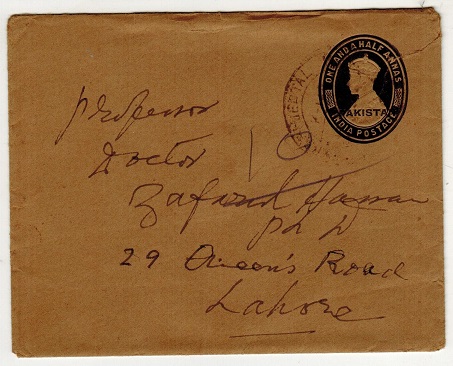 ONE AND A HALF ANNAS
AKISTA
INDIA POSTAGE
Professor
Doctor
Zafarul Hassan
Ph D
29 Queen's Road
Lahore